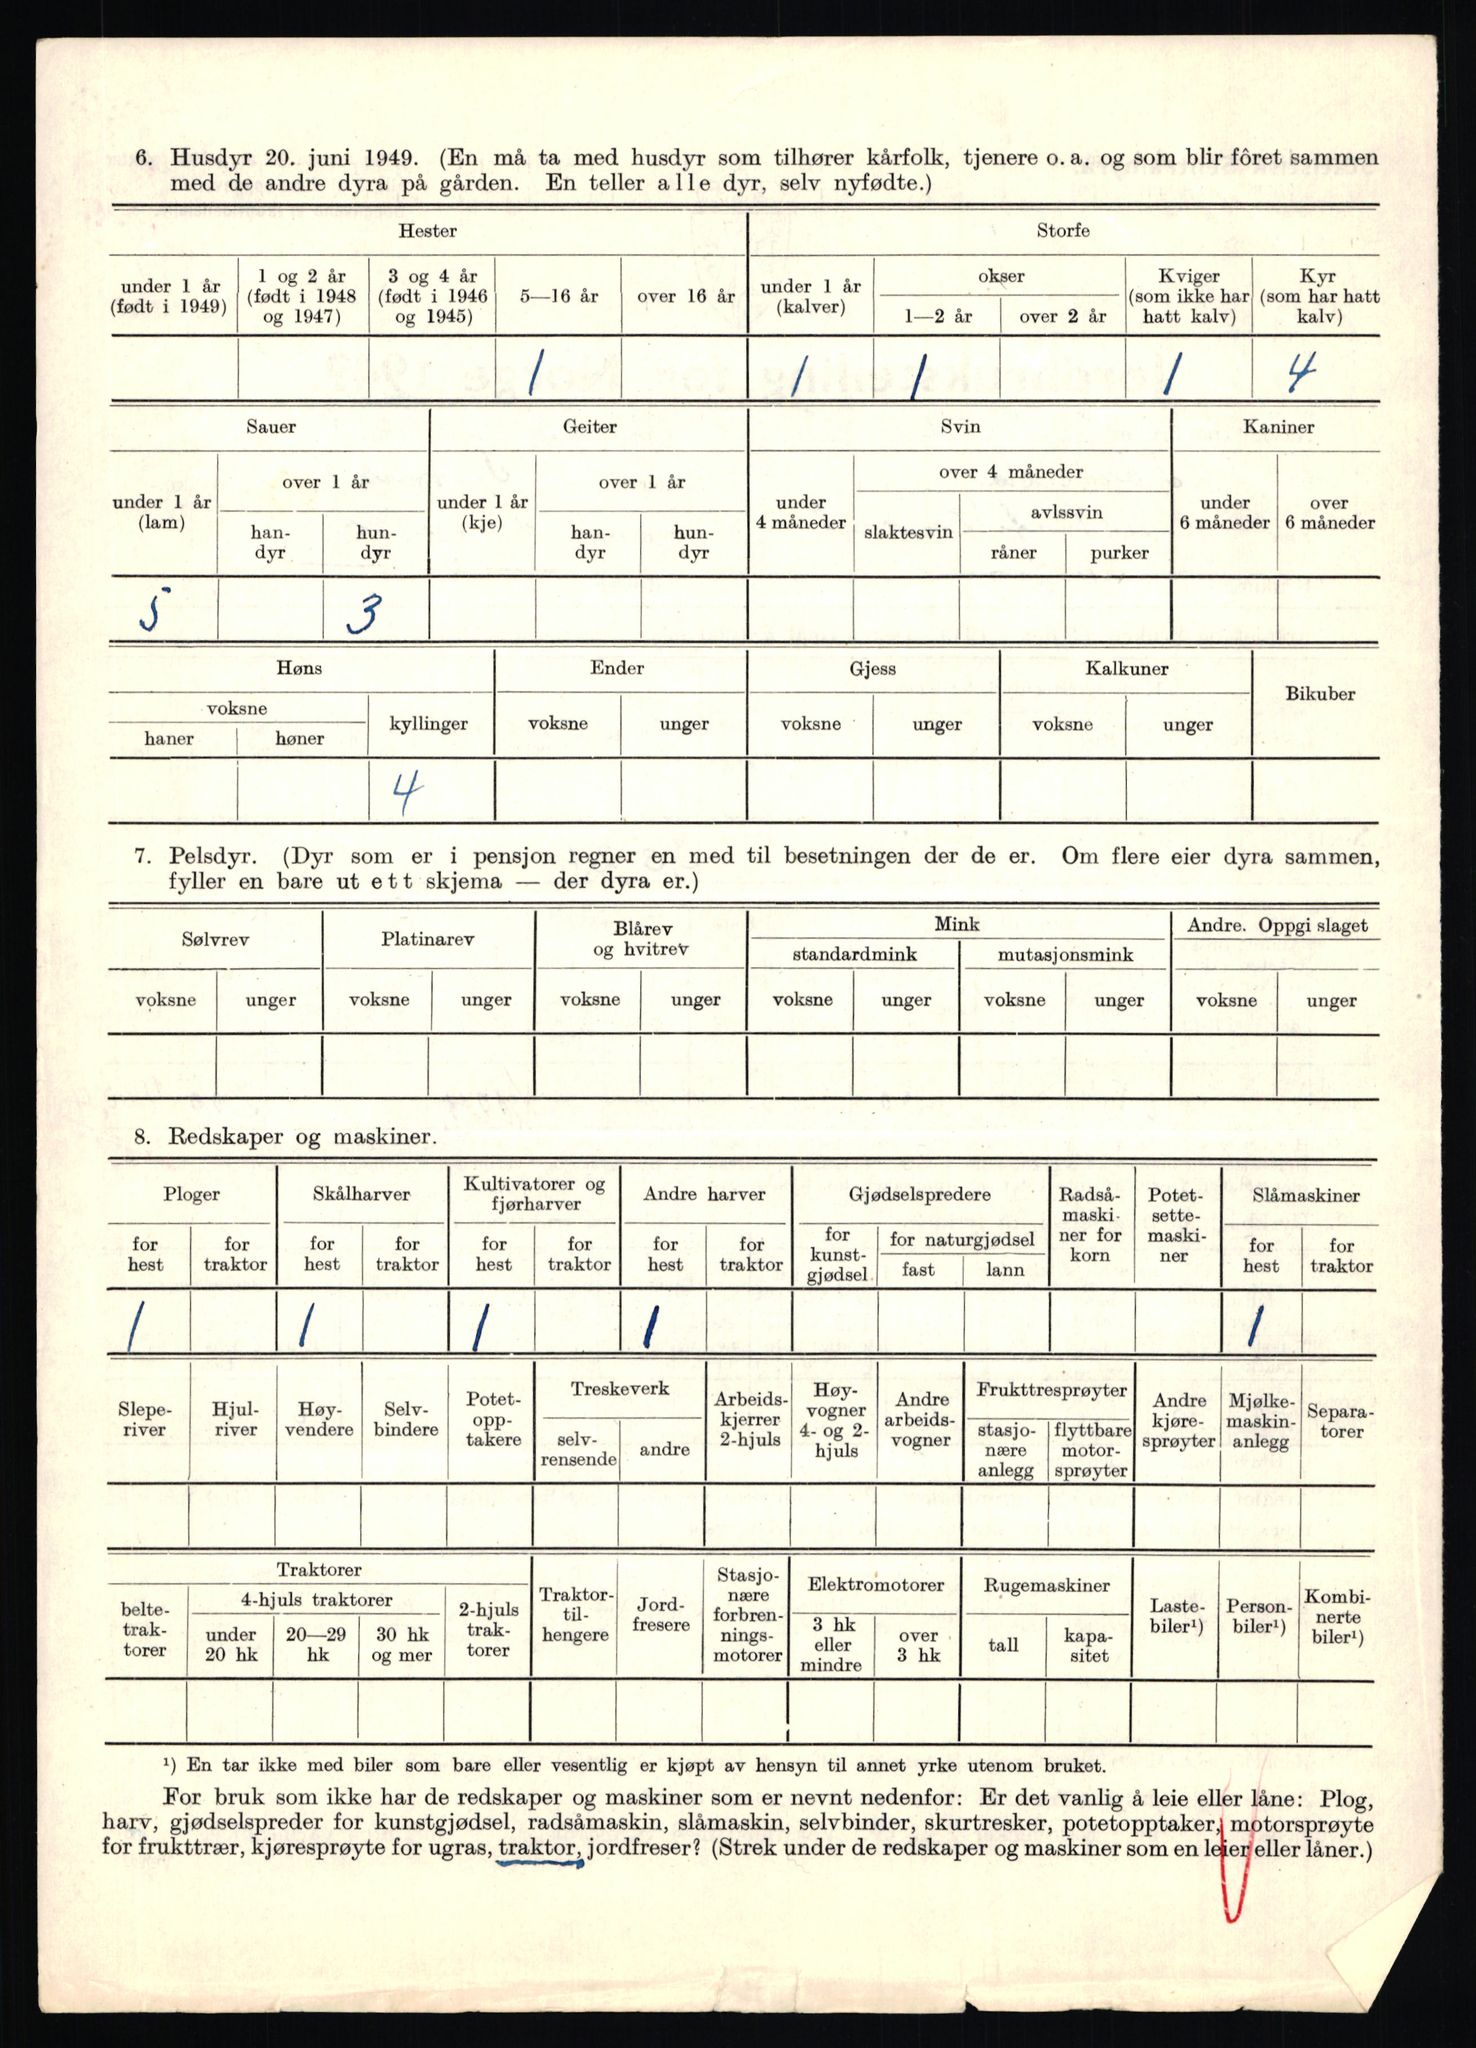 6. Husdyr 20. juni 1949. (En må ta med husdyr som tilhører kårfolk, tjenere o. a. og som blir fôret sammen
med de andre dyra på gården. En teller alle dyr, selv nyfødte.)
Hester Storfe
under 1 år (født i 1949) 1 og 2 år (født i 1948 og 1947) 3 og 4 år (født i 1946 og 1945) 5—16 år over 16 år under 1 år (kalver) okser 1—2 år over 2 år Kviger (som ikke har hatt kalv) Kyr (som har hatt kalv)
1 1 1 1 4
Sauer Geiter Svin Kaniner
under 1 år (lam) over 1 år han-dyr hun-dyr under 1 år (kje) over 1 år han-dyr hun-dyr under 4 måneder over 4 måneder slaktesvin avlssvin råner purker under 6 måneder over 6 måneder
5 3
Høns Ender Gjess Kalkuner Bikuber
voksne haner høner kyllinger voksne unger voksne unger voksne unger
4
7. Pelsdyr. (Dyr som er i pensjon regner en med til besetningen der de er. Om flere eier dyra sammen,
fyller en bare ut ett skjema — der dyra er.)
Sølvrev Platinarev Blårev og hvitrev Mink Andre. Oppgi slaget
standardmink mutasjonsmink
voksne unger voksne unger voksne unger voksne unger voksne unger voksne unger
8. Redskaper og maskiner.
Ploger Skålharver Kultivatorer og fjørharver Andre harver Gjødselspredere Radså-maski-ner for korn Potet-sette-maski-ner Slåmaskiner
for hest for traktor for hest for traktor for hest for traktor for hest for traktor for kunst-gjødsel for naturgjødsel fast lann for hest for traktor
1 1 1 1 1
Slepe-river Hjul-river Høy-vendere Selv-bindere Potet-opp-takere Treskeverk selv-rensende andre Arbeids-kjerrer 2-hjuls Høy-vogner 4- og 2-hjuls Andre arbeids-vogner Frukttresprøyter stasjo-nære anlegg flyttbare motor-sprøyter Andre kjøre-sprøyter Mjølke-maskin-anlegg Separa-torer
Traktorer
belte-trak-torer 4-hjuls traktorer under 20 hk 20—29 hk 30 hk og mer 2-hjuls trak-torer Traktor-til-hengere Jord-fresere Stasjo-nære forbren-nings-motorer Elektromotorer 3 hk eller mindre over 3 hk Rugemaskiner tall kapa-sitet Laste-biler¹) Person-biler¹) Kombi-nerte biler¹)
¹) En tar ikke med biler som bare eller vesentlig er kjøpt av hensyn til annet yrke utenom bruket.
For bruk som ikke har de redskaper og maskiner som er nevnt nedenfor: Er det vanlig å leie eller låne: Plog,
harv, gjødselspreder for kunstgjødsel, radsåmaskin, slåmaskin, selvbinder, skurtresker, potetopptaker, motorsprøyte
for frukttrær, kjøresprøyte for ugras, traktor, jordfreser? (Strek under de redskaper og maskiner som en leier eller låner.)